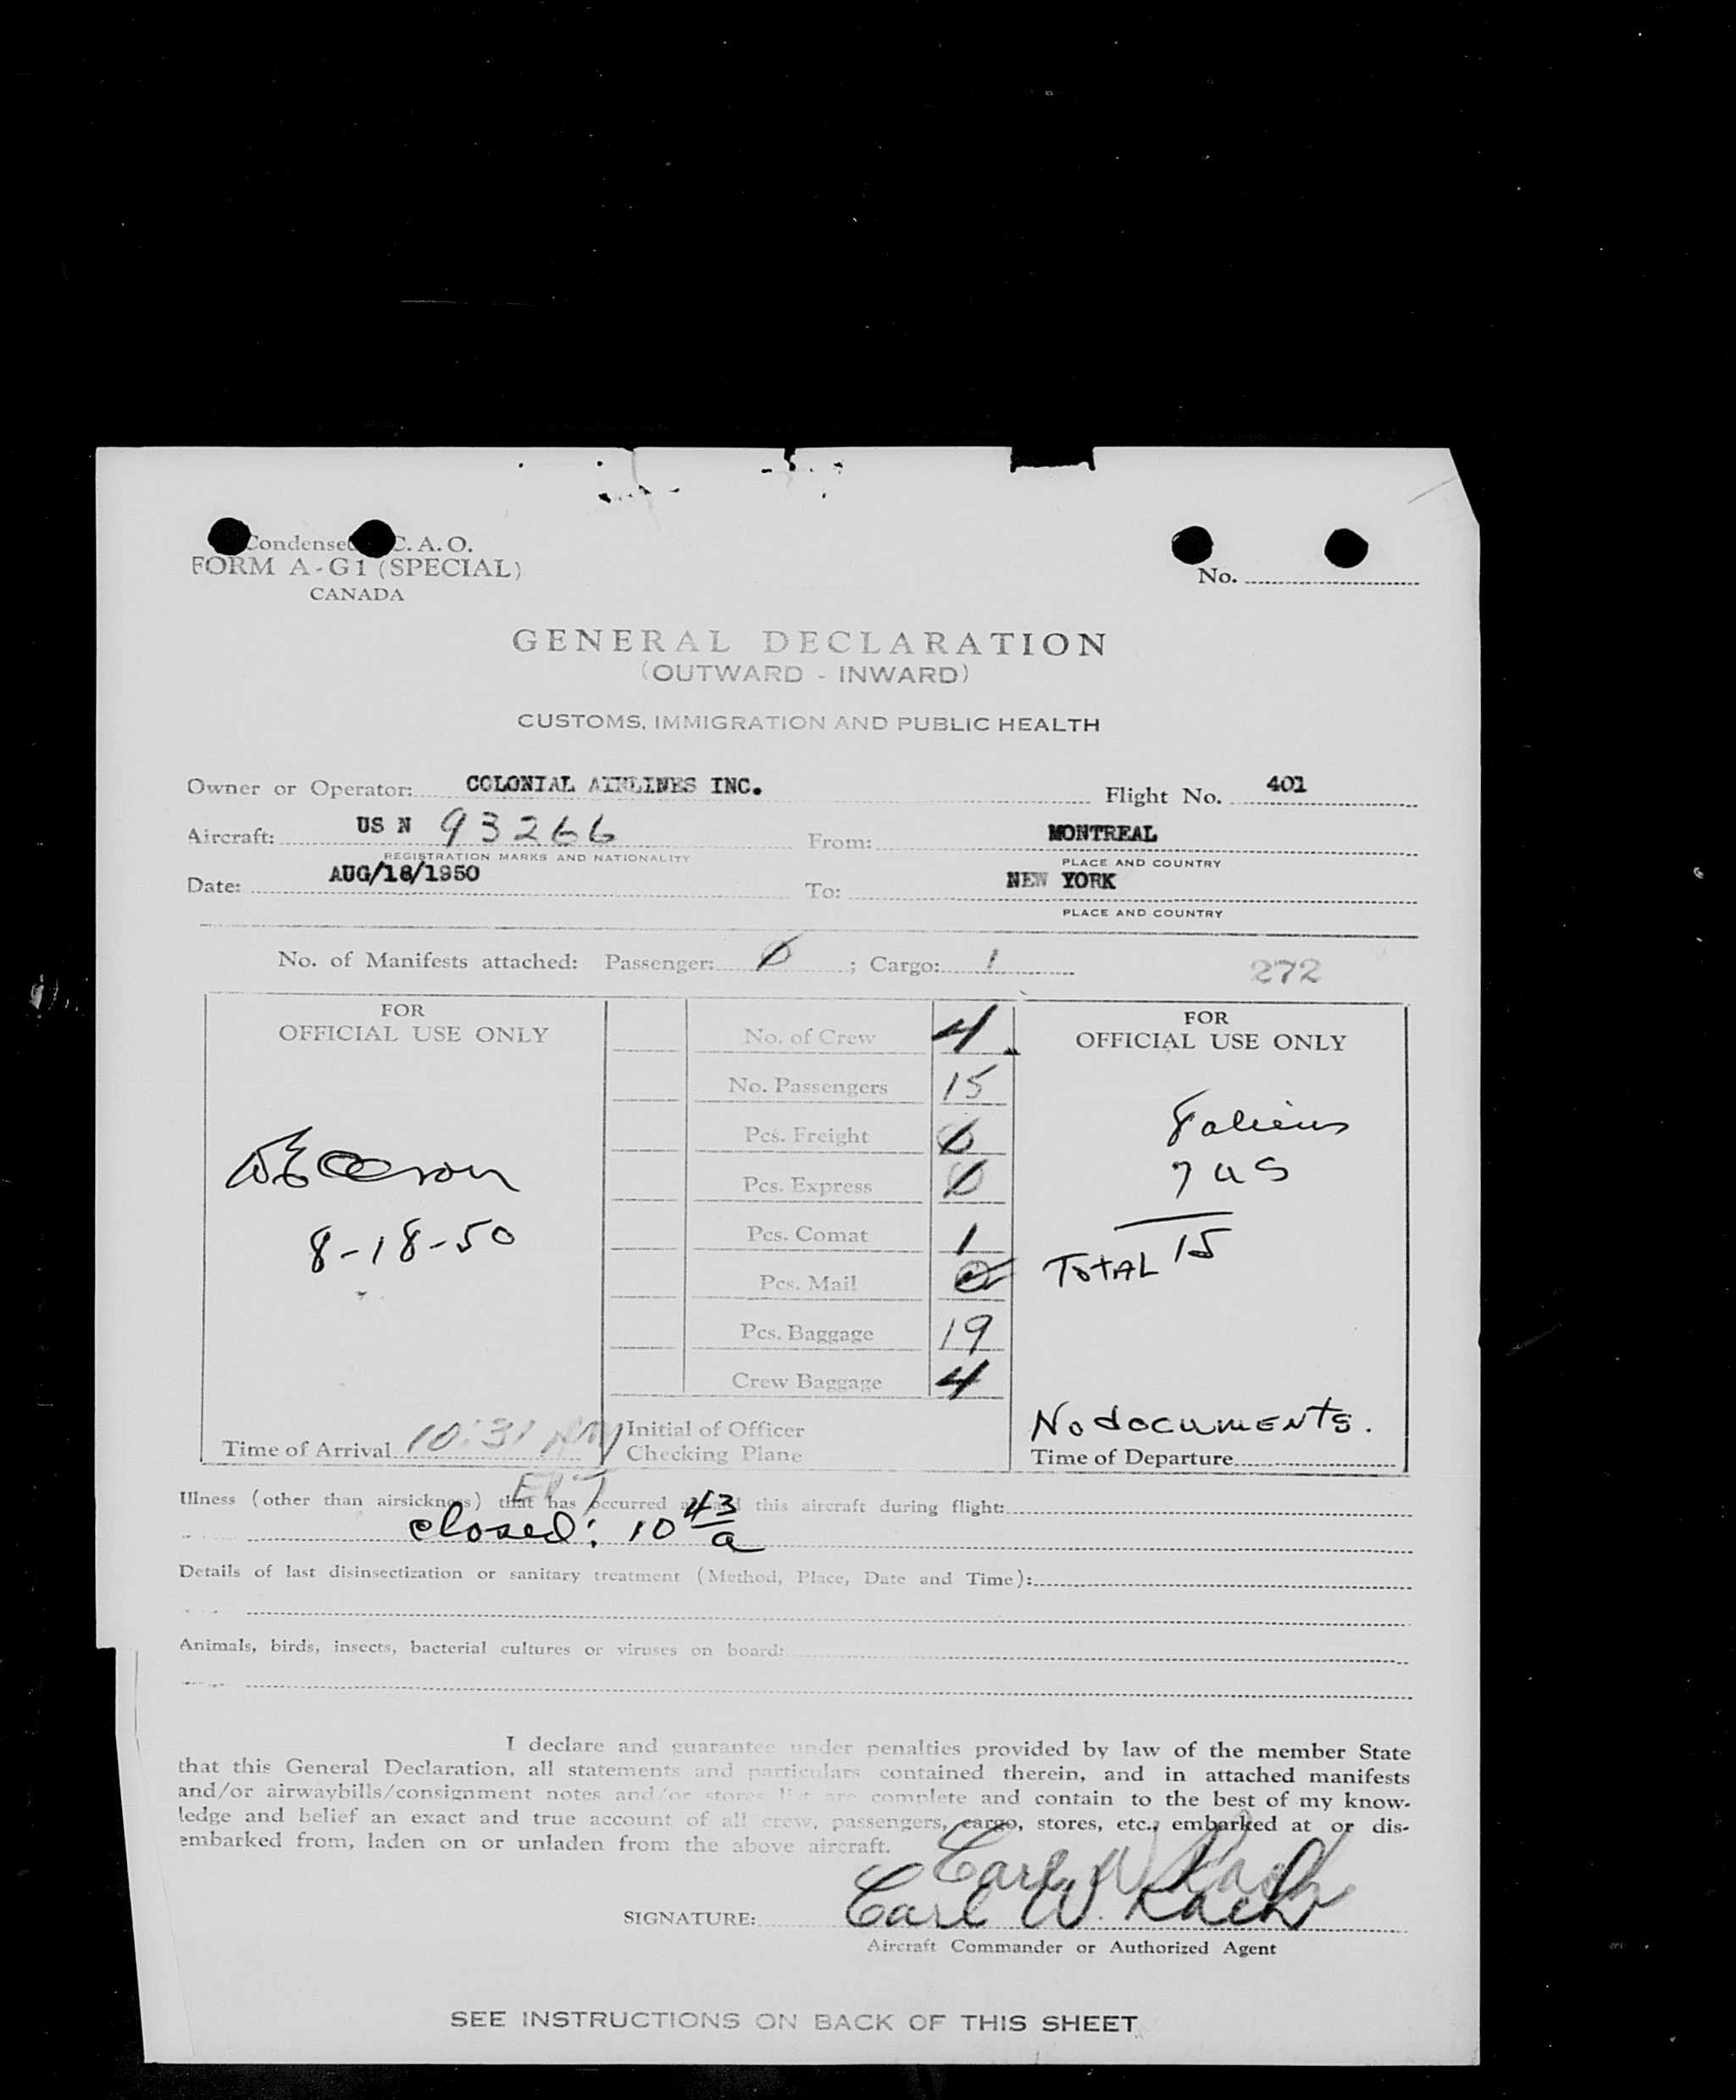 Condensed C. A. O.
FORM A-G1 (SPECIAL)
CANADA
No.
GENERAL DECLARATION
(OUTWARD - INWARD)
CUSTOMS, IMMIGRATION AND PUBLIC HEALTH
Owner or Operator: COLONIAL AIRLINES INC. Flight No. 401
Aircraft: US N 93266 From: MONTREAL
REGISTRATION MARKS AND NATIONALITY PLACE AND COUNTRY
Date: AUG/18/1950 To: NEW YORK
PLACE AND COUNTRY
No. of Manifests attached: Passenger: 0 ; Cargo: 1
272
FOR
OFFICIAL USE ONLY
8-18-50
Time of Arrival 10:31 AM
EDT
No. of Crew 4
No. Passengers 15
Pcs. Freight 0
Pcs. Express 0
Pcs. Comat 1
Pcs. Mail
Pcs. Baggage 19
Crew Baggage 4
Initial of Officer
Checking Plane
FOR
OFFICIAL USE ONLY
8 aliens
7 US
TOTAL 15
No documents.
Time of Departure
Illness (other than airsickness) that has occurred aboard this aircraft during flight:
closed: 10 43/a
Details of last disinsectization or sanitary treatment (Method, Place, Date and Time):
Animals, birds, insects, bacterial cultures or viruses on board:
I declare and guarantee under penalties provided by law of the member State
that this General Declaration, all statements and particulars contained therein, and in attached manifests
and/or airwaybills/consignment notes and/or stores list are complete and contain to the best of my know-
ledge and belief an exact and true account of all crew, passengers, cargo, stores, etc., embarked at or dis-
embarked from, laden on or unladen from the above aircraft.
Carl W.
SIGNATURE: Carl W.
Aircraft Commander or Authorized Agent
SEE INSTRUCTIONS ON BACK OF THIS SHEET